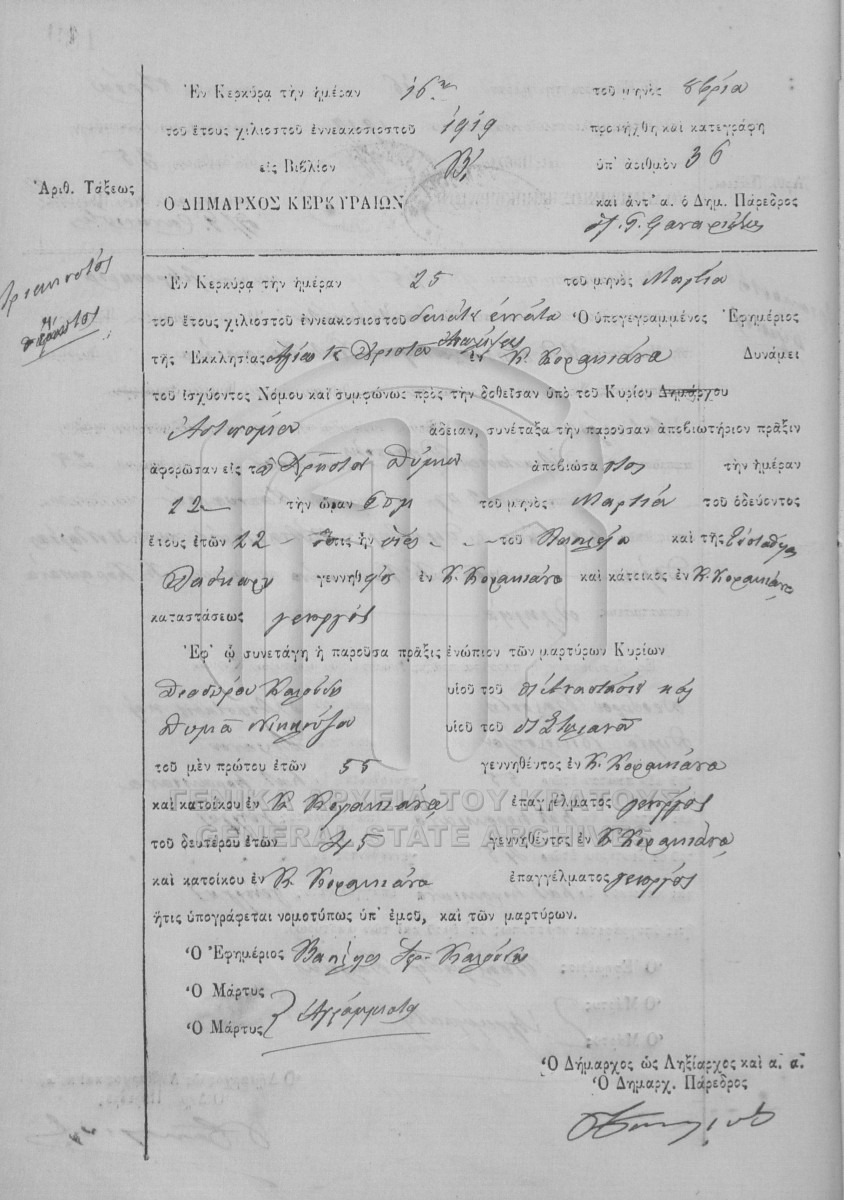 Ἐν Κερκύρᾳ τὴν ἡμέραν 16ην τοῦ μηνὸς 8βρίου
τοῦ ἔτους χιλιοστοῦ ἐννεακοσιοστοῦ 1919 προσήχθη καὶ κατεγράφη
εἰς Βιβλίον Β' ὑπ' ἀριθμὸν 36
Ἀριθ. Τάξεως
Ο ΔΗΜΑΡΧΟΣ ΚΕΡΚΥΡΑΙΩΝ καὶ ἀντ' α. ὁ Δημ. Πάρεδρος
Τριακοστός
πρῶτος
Ἐν Κερκύρᾳ τὴν ἡμέραν 25 τοῦ μηνὸς Μαρτίου
τοῦ ἔτους χιλιοστοῦ ἐννεακοσιοστοῦ δεκάτου ἐννάτου Ὁ ὑπογεγραμμένος Ἐφημέριος
τῆς Ἐκκλησίας ἐν Κ. Κορακιάνα Δυνάμει
τοῦ ἰσχύοντος Νόμου καὶ συμφώνως πρὸς τὴν δοθεῖσαν ὑπὸ τοῦ Κυρίου Δημάρχου
Ἀστυνόμου ἄδειαν, συνέταξα τὴν παροῦσαν ἀποβιωτήριον πρᾶξιν
ἀφορῶσαν εἰς τὸν Χρῆστον ἀποβιώσαντος τὴν ἡμέραν
22 τὴν ὥραν 6πμ τοῦ μηνὸς Μαρτίου τοῦ ὁδεύοντος
ἔτους ἐτῶν 22 ὅστις ἦν υἱός τοῦ καὶ τῆς Εὐσταθίας
γεννηθείς ἐν Κ. Κορακιάνα καὶ κάτοικος ἐν Κ. Κορακιάνα
καταστάσεως γεωργός
Ἐφ' ᾧ συνετάγη ἡ παροῦσα πρᾶξις ἐνώπιον τῶν μαρτύρων Κυρίων
Θεοδώρου Καλούδη υἱοῦ τοῦ Ἀναστασίου καὶ
Θωμᾶ Νικλούζου υἱοῦ τοῦ Στυλιανοῦ
τοῦ μὲν πρώτου ἐτῶν 55 γεννηθέντος ἐν Κ. Κορακιάνα
καὶ κατοίκου ἐν Κ. Κορακιάνα, ἐπαγγέλματος γεωργός
ΓΕΝΙΚΑ ΑΡΧΕΙΑ ΤΟΥ ΚΡΑΤΟΥΣ
GENERAL STATE ARCHIVES
τοῦ δευτέρου ἐτῶν 45 γεννηθέντος ἐν Κ. Κορακιάνα,
καὶ κατοίκου ἐν Κ. Κορακιάνα ἐπαγγέλματος γεωργός
ἥτις ὑπογράφεται νομοτύπως ὑπ' ἐμοῦ, καὶ τῶν μαρτύρων.
Ὁ Ἐφημέριος Βασίλειος Ἱερ. Καλούδης
Ὁ Μάρτυς
Ὁ Μάρτυς Ἀγράμματοι
Ὁ Δήμαρχος ὡς Ληξίαρχος καὶ α. α.
Ὁ Δημαρχ. Πάρεδρος